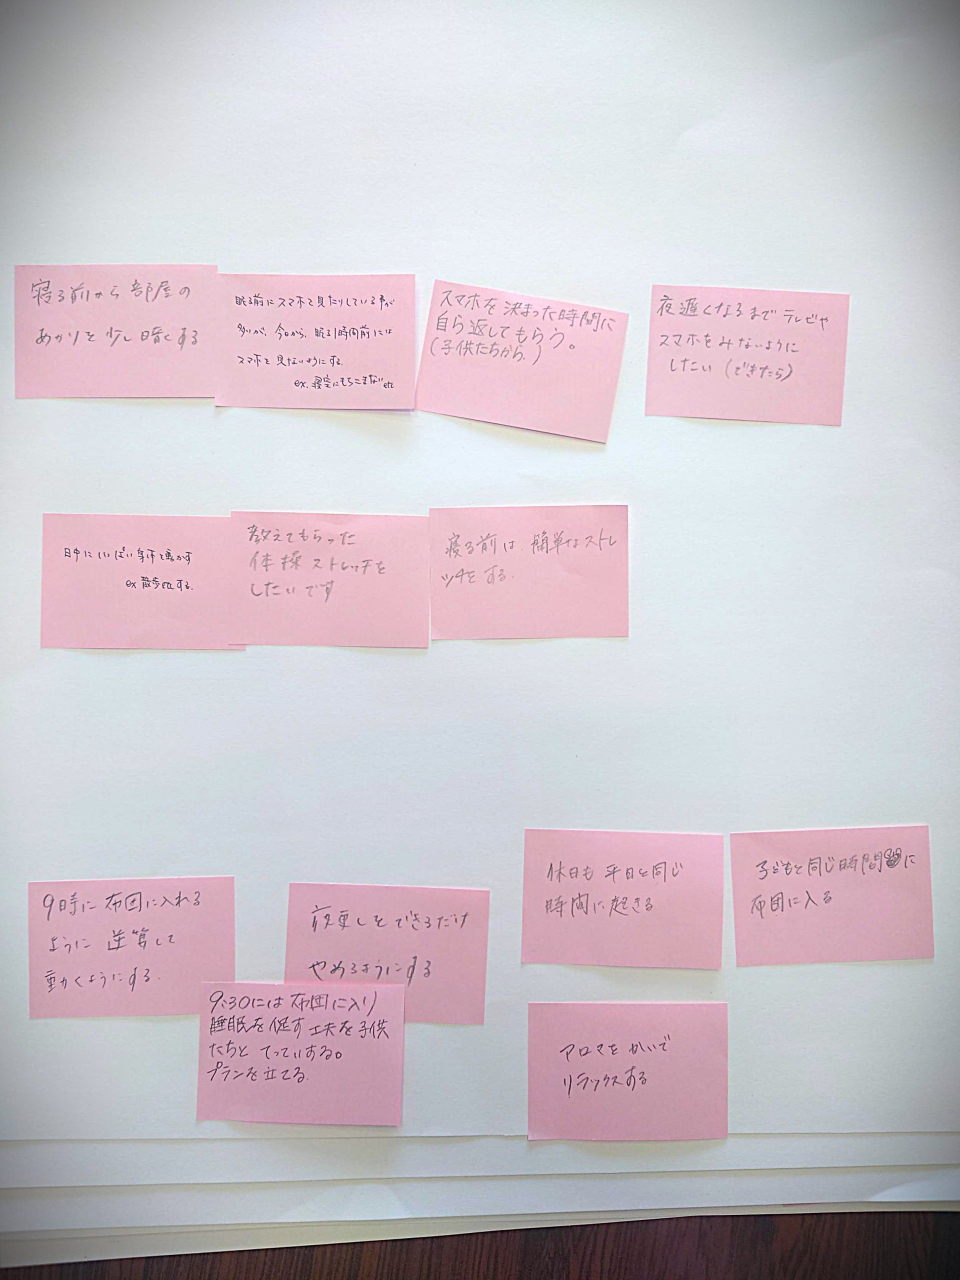 寝る前から部屋の
あかりを少し暗くする
眠る前にスマホを見たりしている事が
多いが、今日から、眠る1時間前には
スマホを見ないようにする。
ex. 寝室にもちこまない etc
スマホを決まった時間に
自ら返してもらう。
(子供たちから。)
夜遅くなるまでテレビや
スマホをみないように
したい(できたら)
日中にいっぱい身体を動かす
ex 散歩etcする。
教えてもらった
体操ストレッチを
したいです
寝る前は簡単なストレ
ッチをする。
9時に布団に入れる
ように逆算して
動くようにする。
夜更しをできるだけ
やめるようにする
9:30には布団に入り
睡眠を促す工夫を子供
たちとてっていする。
プランを立てる。
休日も平日と同じ
時間に起きる
子どもと同じ時間に
布団に入る
アロマをかいで
リラックスする